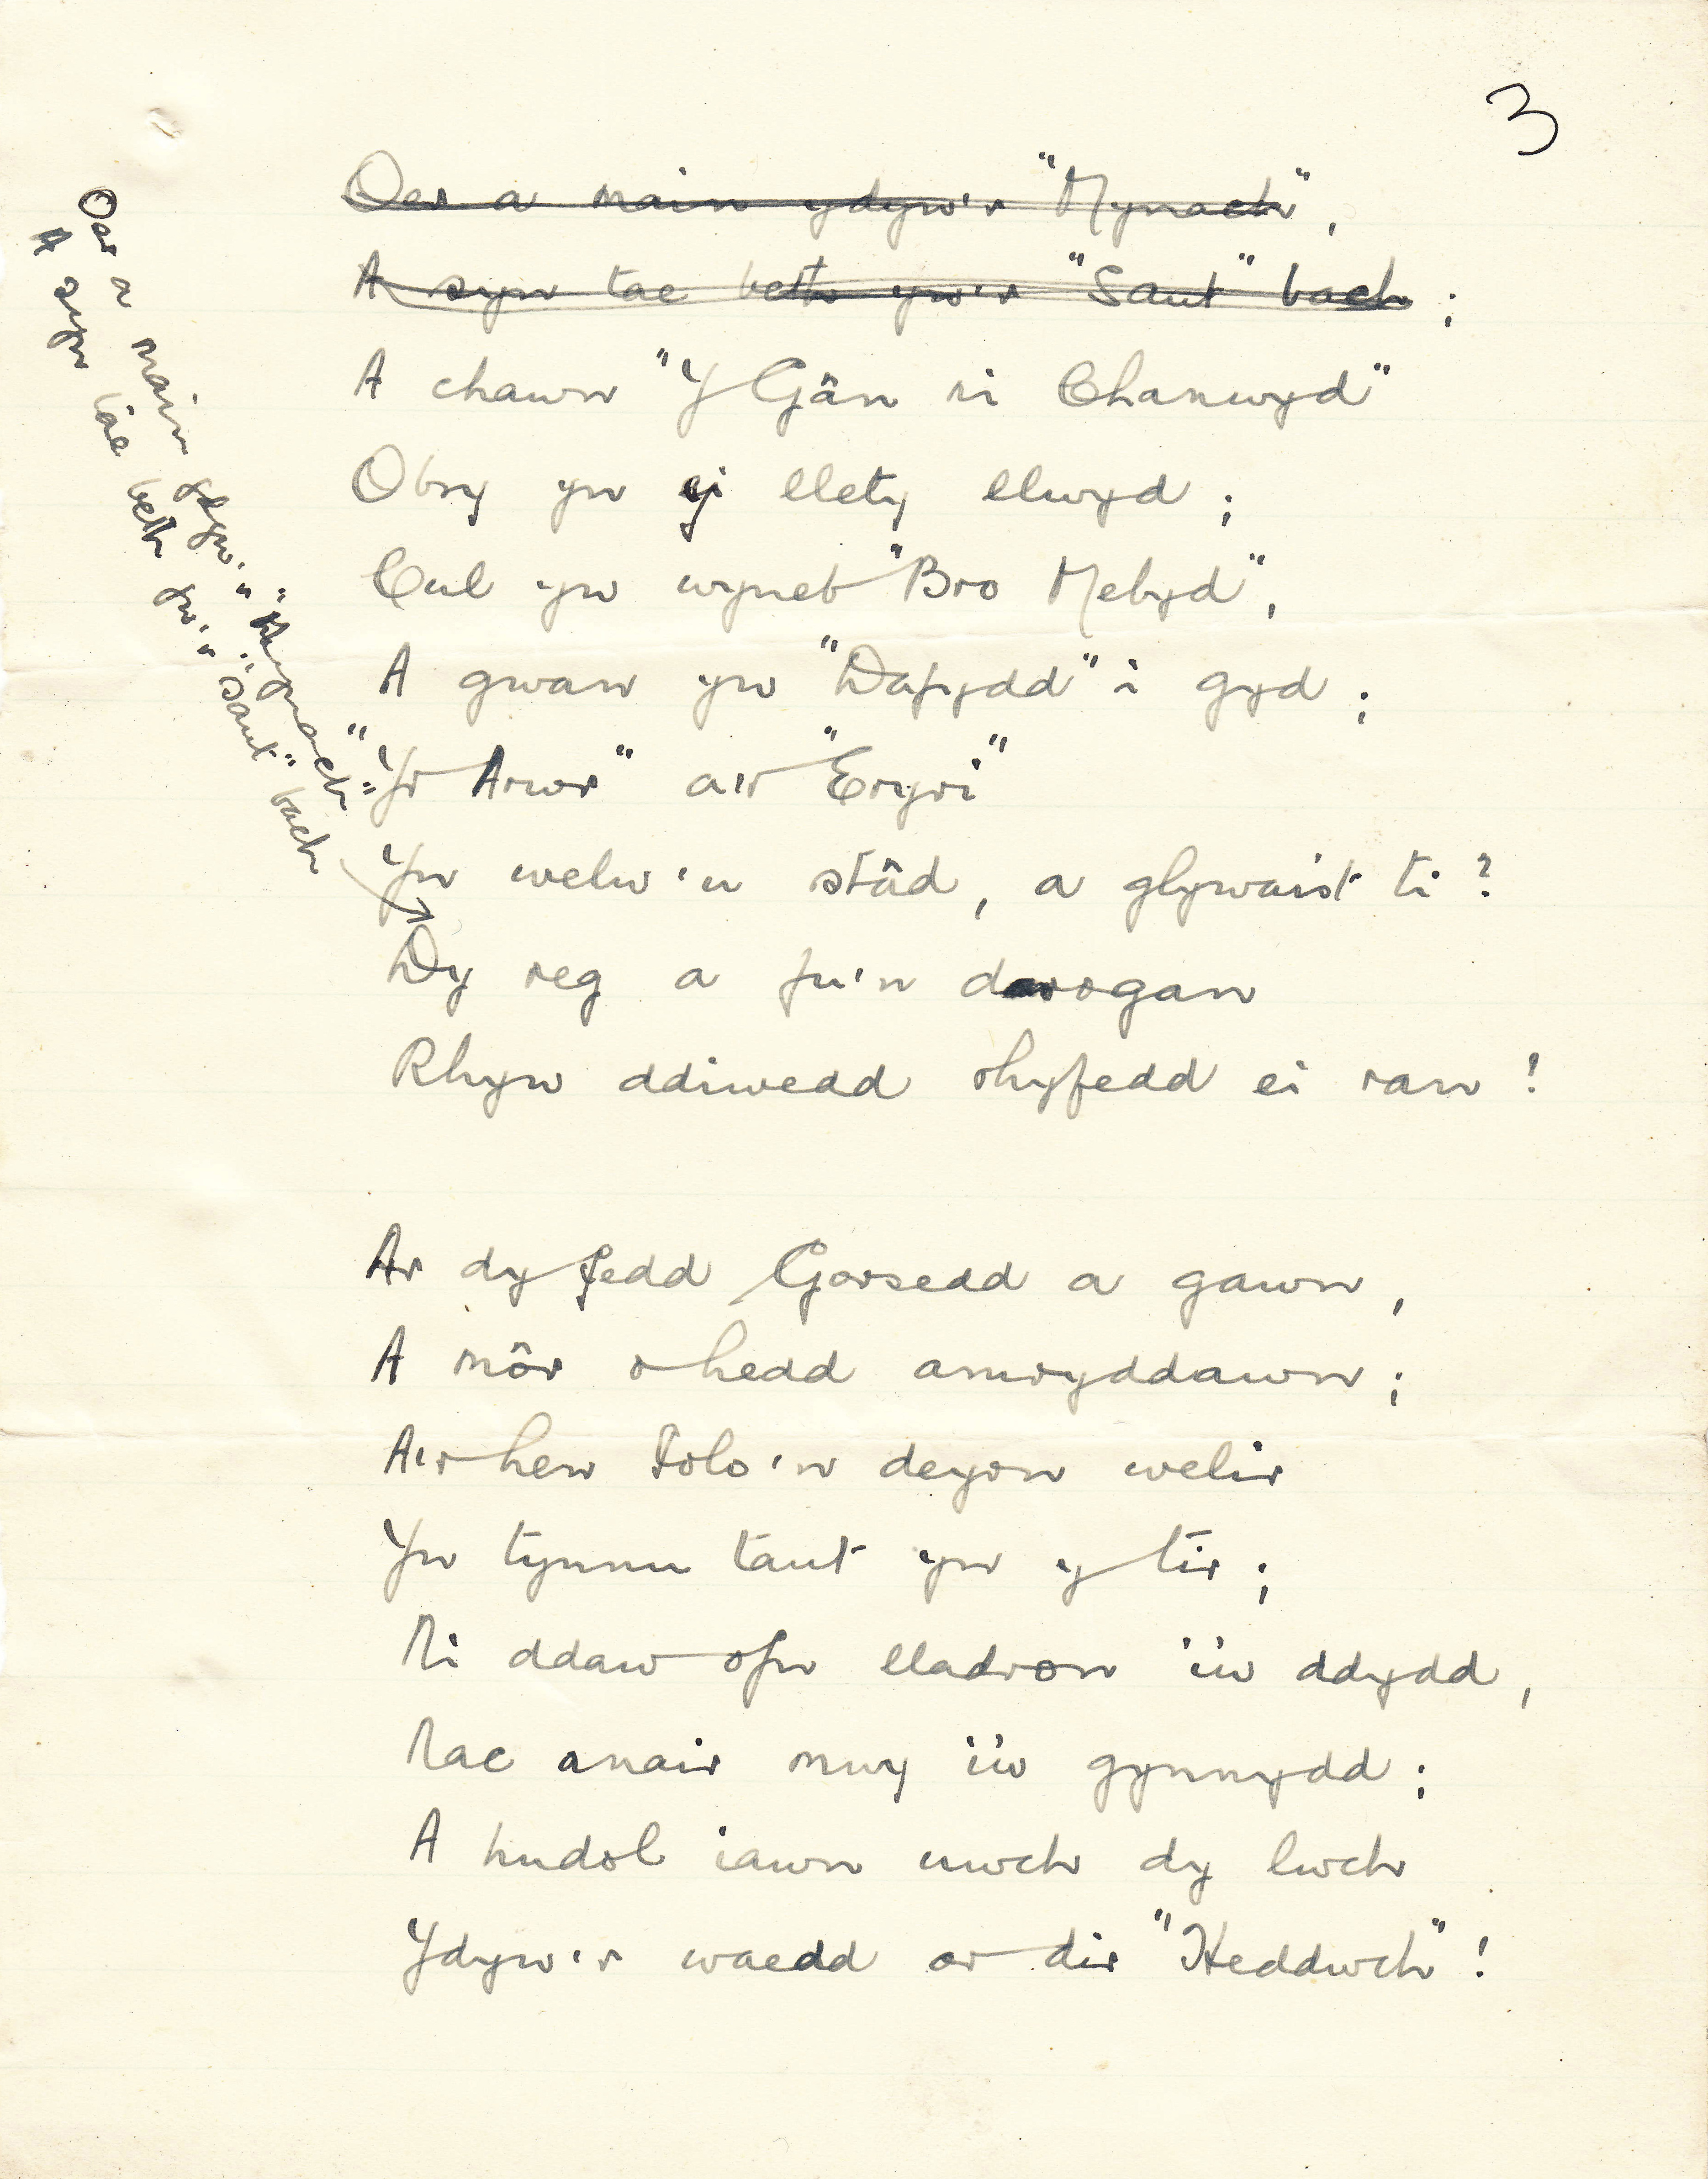 3
Oer a main ydyw'r "Mynach",
A syn tae beth yw'r "Sant" bach;
A chawn "Y Gân ni Chanwyd"
Obry yn ei llety llwyd;
Cul yw wyneb "Bro Mebyd",
A gwan yw "Dafydd" i gyd;
"Yr Arwr" a'r "Eryri"
Yn welw'u stâd, a glywaist ti?
Dy reg a fu'n darogan
Rhyw ddiwedd rhyfedd ei ran!
Ar dy fedd Gorsedd a gawn,
A môr o hedd amryddawn;
A'r hen Iolo'n deyrn welir
Yn tynnu tant yn y tir;
Ni ddaw ofn lladron i'w ddydd,
Nac anair mwy i'w gynnydd;
A hudol iawn uwch dy lwch
Ydyw'r waedd or dir "Heddwch"!
Oer a main ydyw'r "Mynach"
A syn tae beth yw'r "Sant" bach